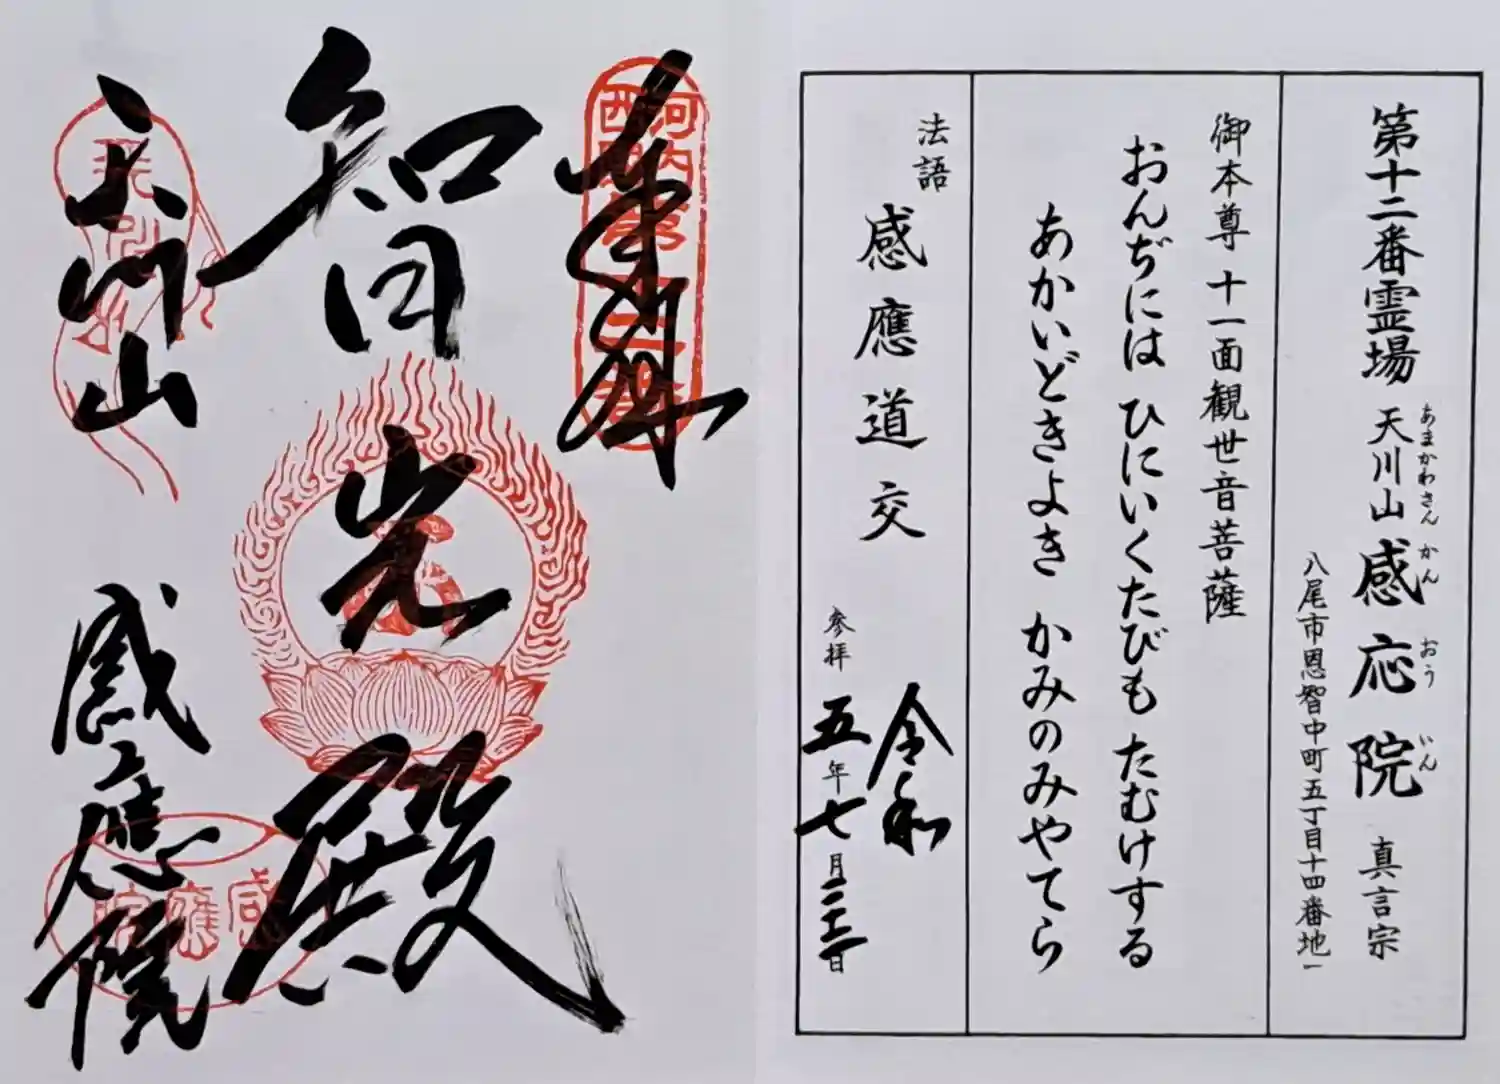 第十二番霊場 天川山 感応院 真言宗
あまかわさん かん おう いん
八尾市恩智中町五丁目十四番地一
御本尊 十一面観世音菩薩
おんぢには ひにいくたびも たむけする
あかいどきよき かみのみやてら
法語 感應道交
参拝 令和五年七月二十二日
奉拝
河内西国第十二番
智光殿
天川山
感應院
感應院